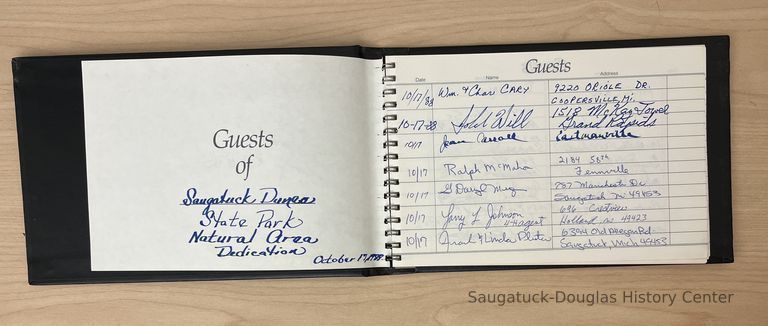 Guests
of
Saugatuck Dunes
State Park
Natural Area
Dedication
October 17, 1988
Guests
Date Name Address
10/17/88 Wm. & Char CARY 9220 ORIOLE DR.
COOPERSVILLE, Mi.
10-17-88 Will 1518 McKay Tower
Grand Rapids
10/17 Jean Eastmanville
10/17 Ralph McMaha 2184 58th
Fennville
10/17 Daryl 787 Manchester Dr.
Saugatuck Mi 49453
10/17 Larry L Johnson 696 Crestview
4-H agent Holland Mi 49423
10/17 & Linda 6394 Old Allegan Rd.
Saugatuck, Mich 49453
Saugatuck-Douglas History Center